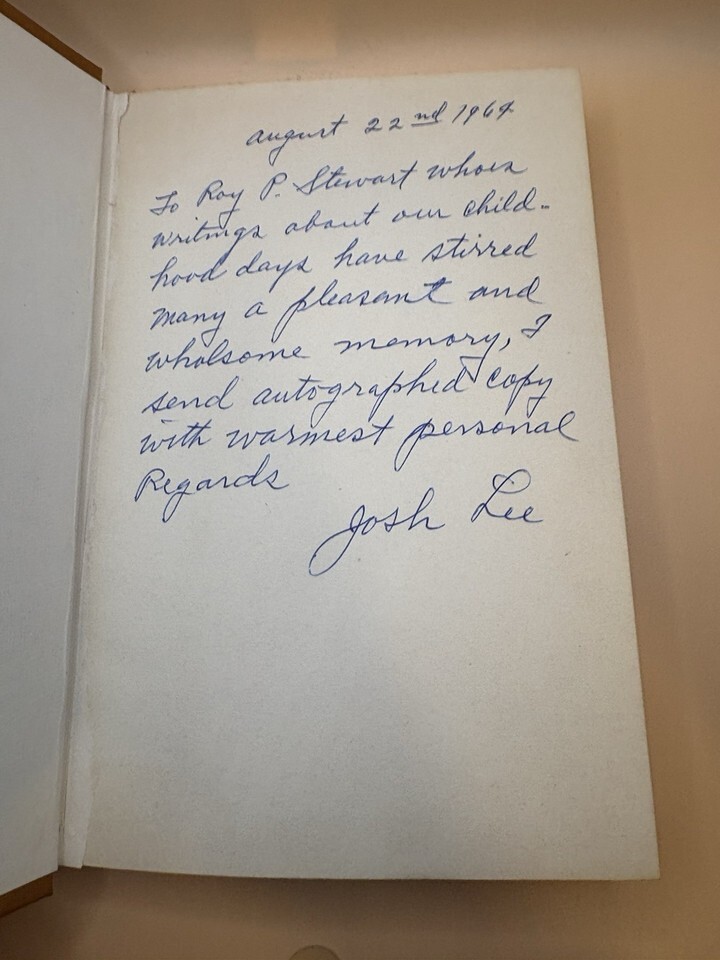 august 22nd 1964
To Roy P. Stewart whoes
writings about our child-
hood days have stirred
many a pleasant and
wholsome memory, I
send autographed copy
with warmest personal
Regards
Josh Lee